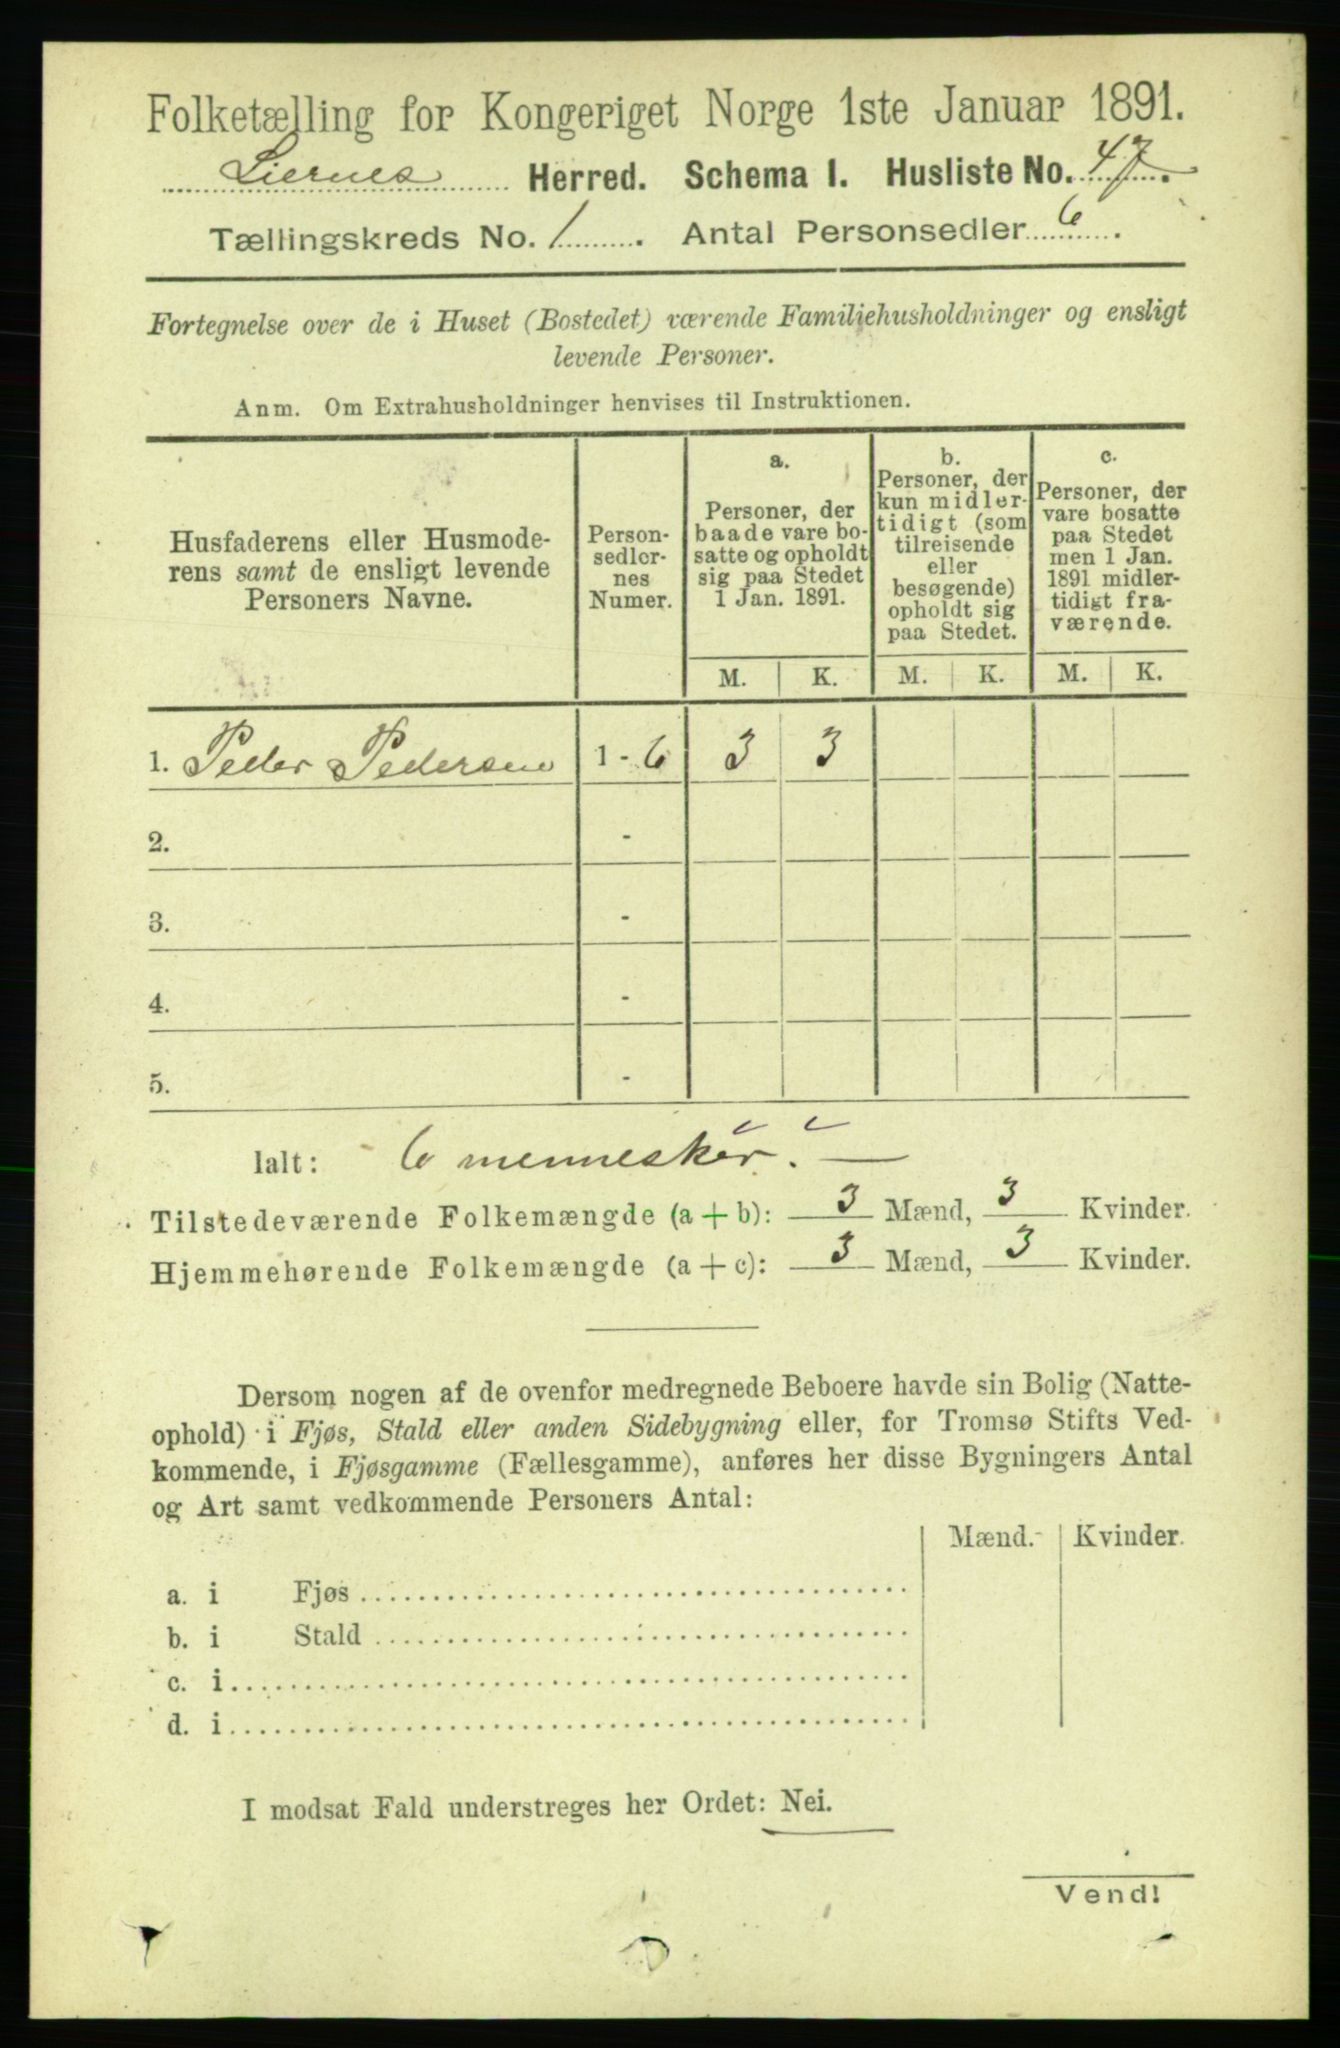 Folketælling for Kongeriget Norge 1ste Januar 1891.
Liernes Herred. Schema I. Husliste No. 47.
Tællingskreds No. 1. Antal Personsedler 6.
Fortegnelse over de i Huset (Bostedet) værende Familiehusholdninger og ensligt
levende Personer.
Anm. Om Extrahusholdninger henvises til Instruktionen.
Husfaderens eller Husmode-
rens samt de ensligt levende
Personers Navne.
Person-
sedler-
nes
Numer.
a.
Personer, der
baade vare bo-
satte og opholdt
sig paa Stedet
1 Jan. 1891.
b.
Personer, der
kun midler-
tidigt (som
tilreisende
eller
besøgende)
opholdt sig
paa Stedet.
c.
Personer, der
vare bosatte
paa Stedet
men 1 Jan.
1891 midler-
tidigt fra-
værende.
M. K. M. K. M. K.
1. Peder Pedersen 1 - 6 3 3
2. -
3. -
4. -
5. -
Ialt: 6 mennesker. —
Tilstedeværende Folkemængde (a + b): 3 Mænd, 3 Kvinder.
Hjemmehørende Folkemængde (a + c): 3 Mænd, 3 Kvinder.
Dersom nogen af de ovenfor medregnede Beboere havde sin Bolig (Natte-
ophold) i Fjøs, Stald eller anden Sidebygning eller, for Tromsø Stifts Ved-
kommende, i Fjøsgamme (Fællesgamme), anføres her disse Bygningers Antal
og Art samt vedkommende Personers Antal:
Mænd. Kvinder.
a. i Fjøs
b. i Stald
c. i
d. i
I modsat Fald understreges her Ordet: Nei.
Vend!